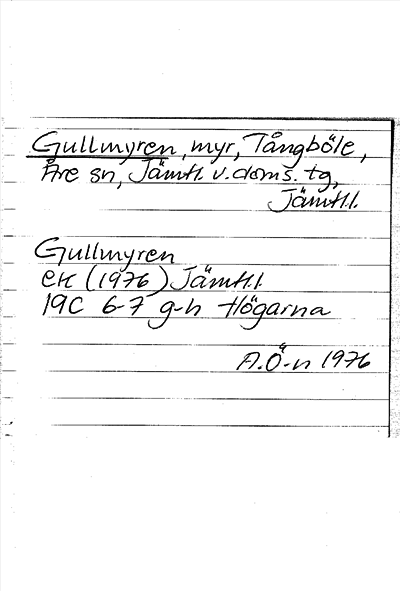 Gullmyren, myr, Tångböle,
Åre sn, Jämtl. v. doms. tg,
Jämtl.l.
Gullmyren
ek (1976) Jämtl.l
19C 6-7 g-h Högarna
A.Ö-n 1976